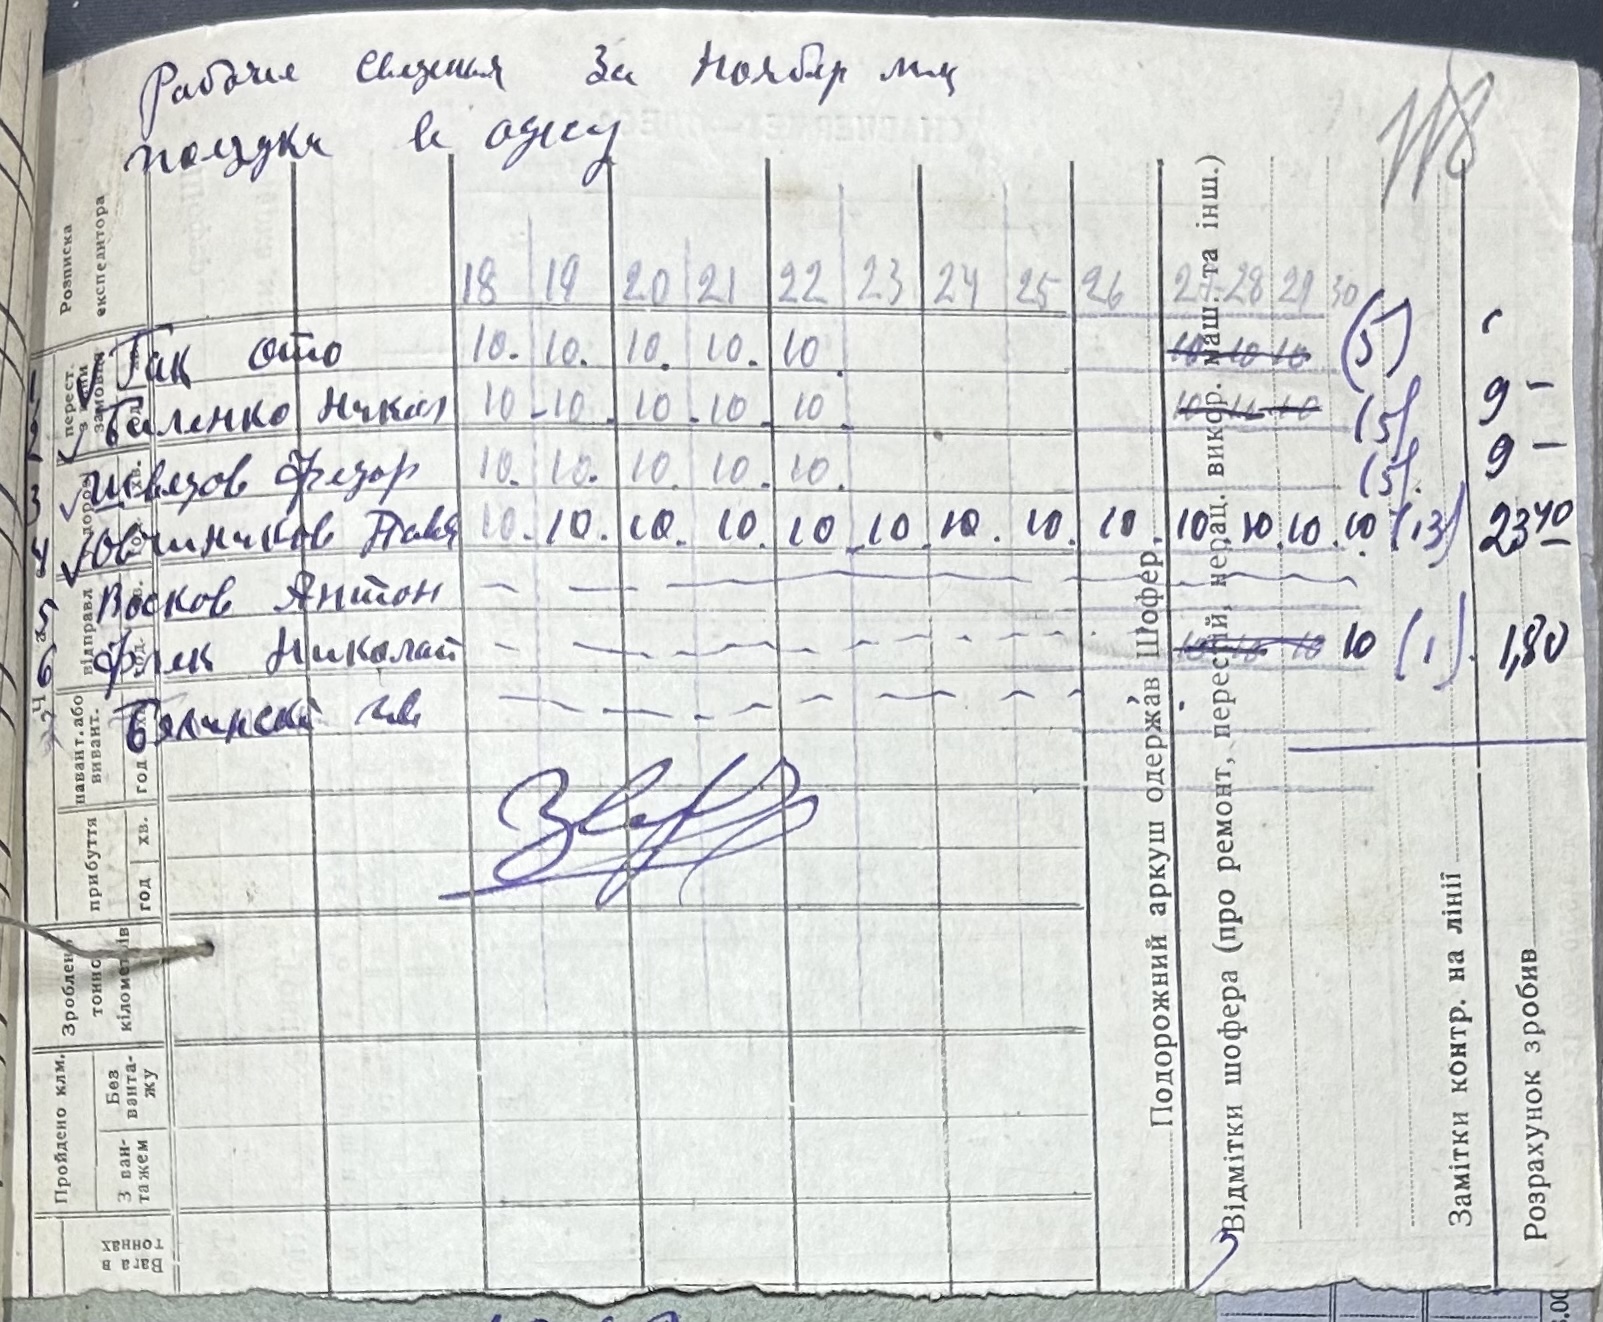 Рабочие сведенья за Ноябр м-ц
поездки в одесу
118
18 19 20 21 22 23 24 25 26 27 28 29 30
1 Гак Ото 10. 10. 10. 10. 10. 10 10 10 (5)
2 Баленко Никол 10 10. 10. 10. 10 10 (5) 9 –
3 Швецов Федор 10. 10. 10. 10. 10. (5). 9 –
4 Овчиников Павл 10. 10. 10. 10. 10. 10. 10. 10. 10. 10. 10. 10. 10 (13) 23 40
5 Восков Антон
6 Николай 10 10 10 10 (1). 1,80
Белинский
Розписка експедитора
перест. з замовн
відправл
навант. або вивант.
год
прибуття
год хв.
Зроблен тонно кілометрів
Пройдено клм.
Без ванта-жу
З ван-тажем
Вага в тоннах
Подорожний аркуш одержав Шофер
Відмітки шофера (про ремонт, перестій, нерац. викор. маш. та інш.)
Замітки контр. на лінії
Розрахунок зробив